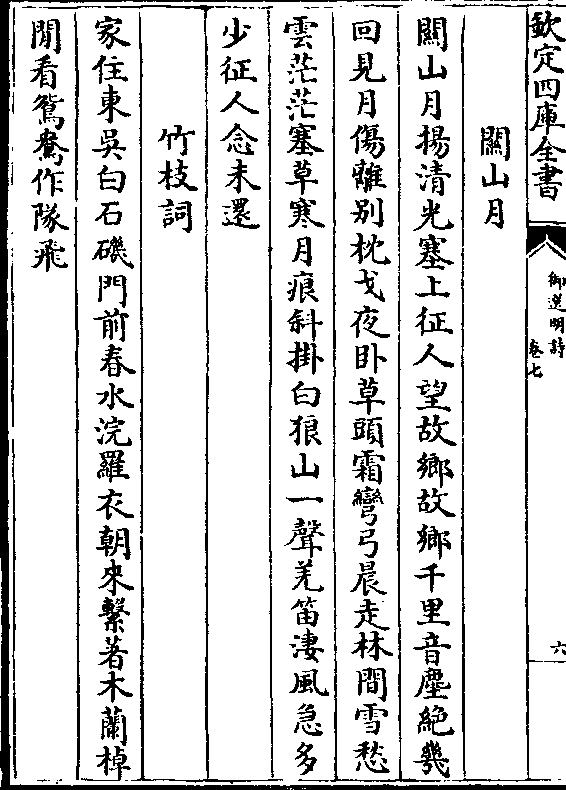 欽定四庫全書
御選明詩
卷七
六
關山月
關山月揚清光塞上征人望故鄉故鄉千里音塵絶幾
回見月傷離别枕戈夜卧草頭霜彎弓晨走林間雪愁
雲茫茫塞草寒月痕斜掛白狼山一聲羌笛淒風急多
少征人念未還
竹枝詞
家住東吳白石磯門前春水浣羅衣朝來繫著木蘭棹
閒看鴛鴦作隊飛